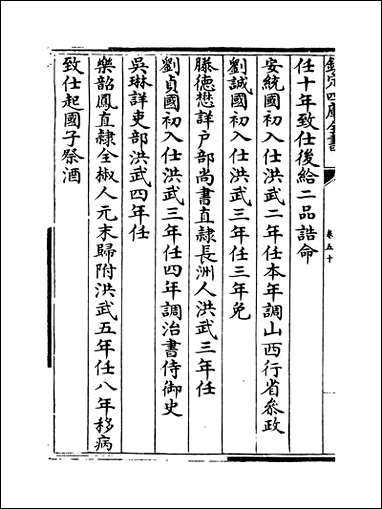 欽定四庫全書
卷五十
任十年致仕後給二品誥命
安統國初入仕洪武二年任本年調山西行省叅政
劉誠國初入仕洪武三年任三年免
滕德懋詳户部尚書直隸長洲人洪武三年任
劉貞國初入仕洪武三年任四年調治書侍御史
吳琳詳吏部洪武四年任
樂韶鳳直隸全椒人元末歸附洪武五年任八年移病
致仕起國子祭酒